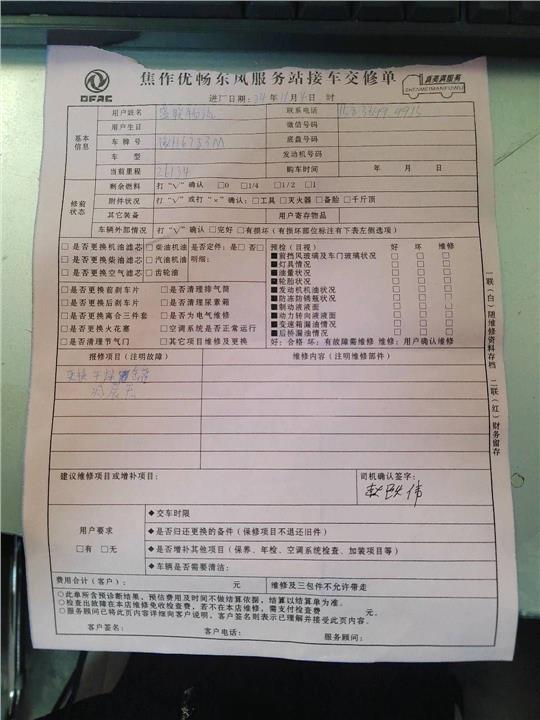 焦作优畅东风服务站接车交修单
DFAC
真美满服务
ZHENMEIMANFUWU
进厂日期: 24 年 11 月 4 日 时
基本信息
用户姓名 联系电话
用户生日 微信号码
车牌号 底盘号码
车型 发动机号码
当前里程 26134 购车时间 年 月 日
修前状态
剩余燃料 打“√”确认 □0 □1/4 □1/2 □1
附件状况 打“√”或打“×”确认: □工具 □灭火器 □备胎 □千斤顶
其它装备 用户寄存物品
车辆外部情况 打“√”确认 □完好 □有损坏(有损坏部位标注有下表左侧选项)
□是否更换机油滤芯 □柴油机油 是否定件: 是□ 否□
□是否更换柴油滤芯 □汽油机油 明细:
□是否更换空气滤芯 □齿轮油
□是否更换前刹车片 □是否清理排气筒
□是否更换后刹车片 □是否清理尿素箱
□是否更换离合三件套 □是否为电气维修
□是否更换火花塞 □空调系统是否正常运行
□是否清理节气门 □其它项目维修及更换
预检(目视) 好 坏 维修
■前挡风玻璃及车门玻璃状况 □ □ □
■灯具情况 □ □ □
■油量状况 □ □ □
■轮胎状况 □ □ □
■发动机机油状况 □ □ □
■防冻防锈瓶状况 □ □ □
■制动液液面 □ □ □
■动力转向液液面 □ □ □
■变速箱漏油情况 □ □ □
■后桥漏油情况 □ □ □
好: 合格 坏: 有故障需维修 维修: 用户确认维修
报修项目(注明故障) 维修内容(注明维修部件)
更换干燥
建议维修项目或增补项目:
司机确认签字:
用户要求
□有 □无
◆交车时限
◆是否归还更换的备件(保修项目不退还旧件)
◆是否增补其他项目(保养、年检、空调系统检查、加装项目等)
◆车辆是否需要清洁:
费用合计(客户): 元 维修及三包件不允许带走
○此单所含预诊断结果,预估费用及时间不做结算依据,结算以结算单为准。
○检查出故障在本店维修免收检查费,若不在本店维修,需支付检查费 元。
○服务顾问已将此页内容详细向客户说明,客户签名则表示已理解并接受此页内容。
客户签名: 客户电话: 服务顾问:
一联(白)随维修资料存档 二联(红)财务留存